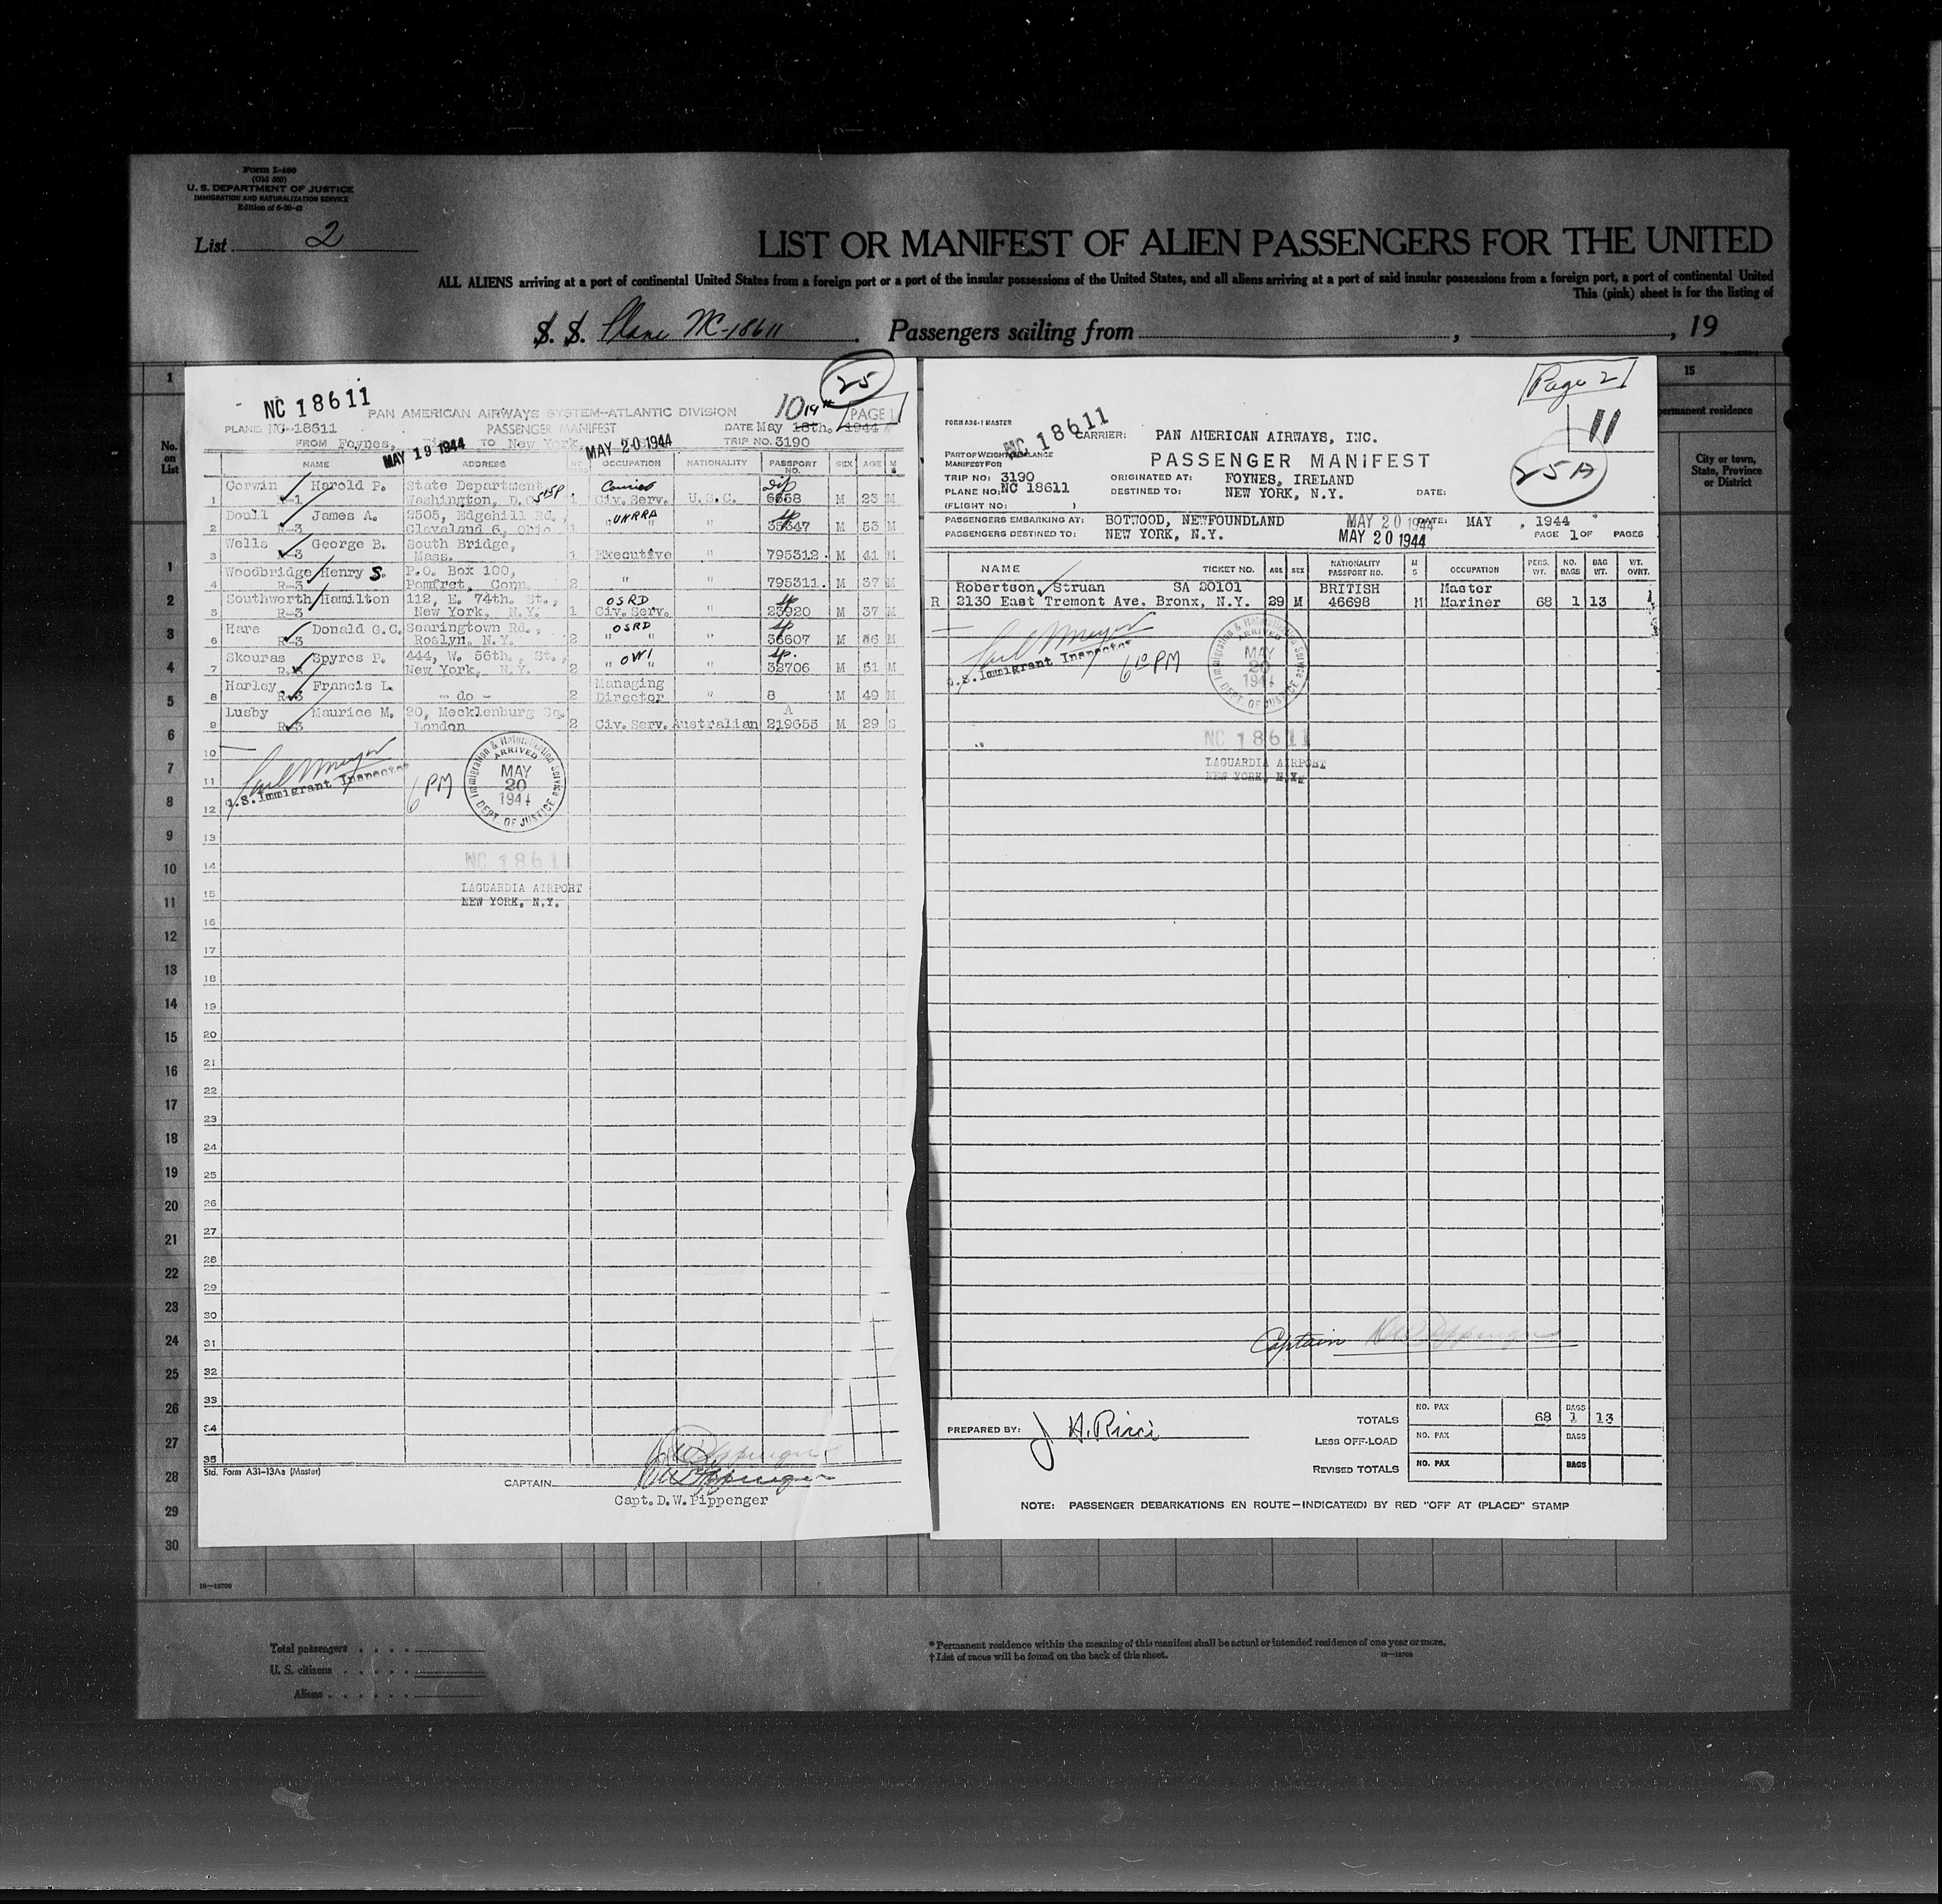 Form I-400
(Old 500)
U. S. DEPARTMENT OF JUSTICE
IMMIGRATION AND NATURALIZATION SERVICE
Edition of 6-20-42
List 2
LIST OR MANIFEST OF ALIEN PASSENGERS FOR THE UNITED
ALL ALIENS arriving at a port of continental United States from a foreign port or a port of the insular possessions of the United States, and all aliens arriving at a port of said insular possessions from a foreign port, a port of continental United
This (pink) sheet is for the listing of
S. S. Plane NC-18611. Passengers sailing from , , 19
1
15
permanent residence
No. on List
City or town, State, Province or District
NC 18611
25
PAN AMERICAN AIRWAYS SYSTEM—ATLANTIC DIVISION 10 PAGE 1
PLANE NC-18611 PASSENGER MANIFEST DATE May 18th. 19th 1944
FROM Foynes, TO New York, TRIP NO. 3190
MAY 19 1944 MAY 20 1944
NAME ADDRESS OCCUPATION NATIONALITY PASSPORT NO. SEX AGE M S
Corwin Harold P. State Department, Courier Dip
1 R-1 Washington, D.C. 1 Civ. Serv. U.S.C. 6658 M 23 M
Doull James A. 2505, Edgehill Rd., UNRRA Sp
2 R-3 Cleveland 6, Ohio 1 " " " 35347 M 53 M
Wells George B. South Bridge,
3 R-3 Mass. 1 Executive " 795312. M 41 M
Woodbridge Henry S. P.O. Box 100,
4 R-3 Pomfret, Conn. 2 " " 795311. M 37 M
Southworth Hamilton 112, E. 74th. St., OSRD Sp
5 R-3 New York, N.Y. 1 Civ. Serv. " 23920 M 37 M
Hare Donald G.C. Searingtown Rd., OSRD Sp
6 R-3 Roslyn, N.Y. 2 " " " 36607 M 36 M
Skouras Spyros P. 444, W. 56th., St., OWI Sp.
7 R-3 New York, N.Y. 2 " " " 32706 M 51 M
Harley Francis L. Managing
8 R-3 - do - 2 Director " 8 M 49 M
Lusby Maurice M. 20, Mecklenburg Sq. A
9 R-3 London 2 Civ. Serv. Australian 219655 M 29 S
10
11
12
U.S. Immigrant Inspector
6 PM
Immigration & Naturalization Service
ARRIVED
MAY
20
1944
DEPT. OF JUSTICE
13
14
NC 18611
LAGUARDIA AIRPORT
15
NEW YORK, N.Y.
16
17
18
19
20
21
22
23
24
25
26
27
28
29
30
31
32
33
34
35
Std. Form A31-13Aa (Master)
CAPTAIN
Capt. D. W. Pippenger
Page 2
11
25A
FORM A36-1 MASTER
NC 18611
CARRIER: PAN AMERICAN AIRWAYS, INC.
PART OF WEIGHT/BALANCE
MANIFEST FOR
PASSENGER MANIFEST
TRIP NO: 3190 ORIGINATED AT: FOYNES, IRELAND
PLANE NO: NC 18611 DESTINED TO: NEW YORK, N.Y. DATE:
(FLIGHT NO: )
PASSENGERS EMBARKING AT: BOTWOOD, NEWFOUNDLAND MAY 20 1944 DATE: MAY , 1944
PASSENGERS DESTINED TO: NEW YORK, N.Y. MAY 20 1944 PAGE 1 OF PAGES
NAME TICKET NO. AGE SEX NATIONALITY PASSPORT NO. M S OCCUPATION PERS. WT. NO. BAGS BAG WT. WT. OVHT.
Robertson, Struan SA 20101 BRITISH Master
R 2130 East Tremont Ave. Bronx, N.Y. 29 M 46698 M Mariner 68 1 13
U.S. Immigrant Inspector
6 10 PM
Immigration & Naturalization Service
ARRIVED
MAY
20
1944
DEPT. OF JUSTICE
NC 18611
LAGUARDIA AIRPORT
NEW YORK, N.Y.
Captain
PREPARED BY: J H. Ricci
TOTALS NO. PAX 68 BAGS 1 13
LESS OFF-LOAD NO. PAX BAGS
REVISED TOTALS NO. PAX BAGS
NOTE: PASSENGER DEBARKATIONS EN ROUTE—INDICATE(D) BY RED "OFF AT (PLACE)" STAMP
1
2
3
4
5
6
7
8
9
10
11
12
13
14
15
16
17
18
19
20
21
22
23
24
25
26
27
28
29
30
16—18709
Total passengers
U. S. citizens
Aliens
* Permanent residence within the meaning of this manifest shall be actual or intended residence of one year or more.
† List of races will be found on the back of this sheet. 16—18709